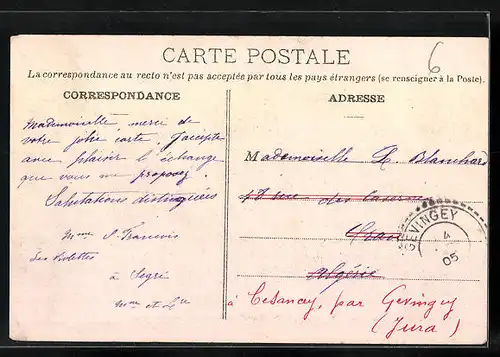 6
CARTE POSTALE
La correspondance au recto n'est pas acceptée par tous les pays étrangers (se renseigner à la Poste).
CORRESPONDANCE
Mademoiselle, merci de
votre jolie carte, j'accepte
avec plaisir l'échange
que vous me proposez
Salutations distinguées
Mme
Les Violettes
à Segré
ADRESSE
Mademoiselle L. Blanchard
rue des
Oran
Algérie
à Cesancey, par Gevingey
(Jura)
GEVINGEY
4
05